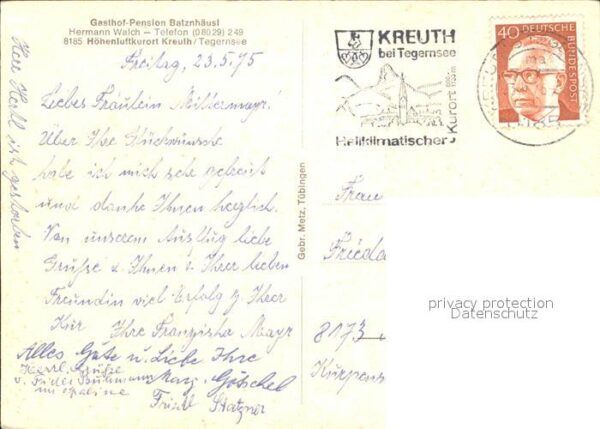 Gasthof-Pension Batznhäusl
Hermann Walch – Telefon (08029) 249
8185 Höhenluftkurort Kreuth / Tegernsee
Freitag, 23.5.75
Liebes Fräulein Mittermayr!
Über Ihre Glückwünsche
habe ich mich sehr gefreut
und danke Ihnen herzlich.
Von unserem Ausflug liebe
Grüße u. Ihnen u. Ihrer lieben
Freundin viel Erfolg z. Ihrer
Kur Ihre Franziska Mayr
Alles Gute u. Liebe Ihre
Herzl. Grüße
v.
Friedl
Herr Heihl ist gestorben
Gebr. Metz, Tübingen
KREUTH
bei Tegernsee
Heilklimatischer
Kurort
40
DEUTSCHE
BUNDESPOST
8185
Frau
Frieda
8173
Kurpens
privacy protection
Datenschutz